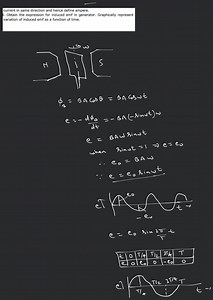 current in same direction and hence define ampere.
Obtain the expression for induced emf in generator. Graphically represent
variation of induced emf as a function of time.
ω
N S
ϕ_B = BA cosθ = BA cosωt
e = -dϕ_B/dt = -BA(-sinωt)ω
e = BAω sinωt
when sinωt = 1 ⇒ e = e₀
∴ e₀ = BAω
∴ e = e₀ sinωt
e↑ t→
-e₀
e = e₀ sin 2π/T t
t 0 T/4 T/2 3T/4 T
e 0 e₀ 0 -e₀ 0
e↑ T/4 T/2 3T/4 T t→